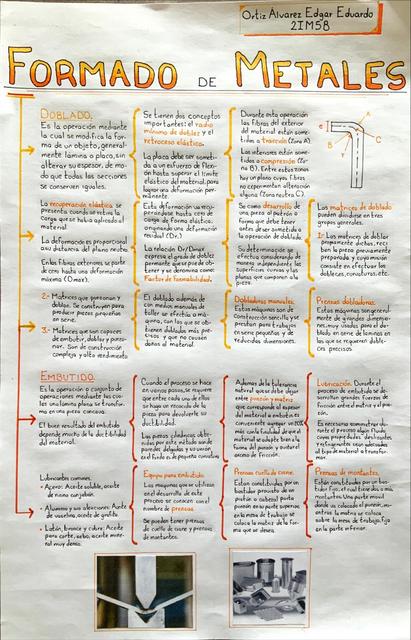 Ortiz Álvarez Edgar Eduardo
2IM58
FORMADO DE METALES
DOBLADO.
Es la operación mediante
la cual se modifica la for-
ma de un objeto, general-
mente lámina o placa, sin
alterar su espesor, de mo-
do que todas las secciones
se conserven iguales.
Se tienen dos conceptos
importantes: el radio
mínimo de doblez y el
retroceso elástico.
La placa debe ser someti-
da a un esfuerzo de flexi-
ón hasta superar el límite
elástico del material, para
lograr una deformación per-
manente.
Durante esta operación
las fibras del exterior
del material están some-
tidas a tracción (Zona A).
Las interiores están some-
tidas a compresión (Zona
B). Entre estas zonas
hay un plano cuyas fibras
no experimentan alteración
alguna (Zona neutra C).
e
A
B
C
r
La recuperación elástica se
presenta cuando se retira la
carga que se había aplicado al
material.
La deformación es proporcional
a su distancia del plano neutro
En las fibras exteriores se parte
de cero hasta una deformación
máxima (Dmax).
Esta deformación va recu-
perándose hasta cero
carga de forma elástica,
originando una deformación
residual (Dr).
La relación Dr/Dmax
expresa el grado de doblez
permanente que se puede ob-
tener y se denomina como:
Factor de formabilidad.
Se conoce como desarrollo de
una pieza al patrón o
forma que debe tener
antes de ser sometido a
la operación de doblado.
Su determinación se
efectúa considerando de
manera independiente las
superficies curvas y las
planas que componen a la
pieza.
Las matrices de doblar
pueden dividirse en tres
grupos generales.
1- Las matrices de doblar
propiamente dichas, reci-
ben la pieza previamente
preparada, y cuya misión
consiste en efectuar los
dobleces, curvaturas, etc.
2- Matrices que punzonan y
doblan. Se construyen para
producir piezas pequeñas
en serie.
3- Matrices que son capaces
de embutir, doblar y punzo-
nar. Son de construcción
compleja y alto rendimiento
El doblado además de
con medios manuales de
taller se efectúa a má-
quina, con las que se ob-
tienen doblados más pre-
cisos y que no causen
daños al material.
Dobladoras manuales.
Estas máquinas son de
construcción sencilla y se
prestan para trabajos
en serie pequeños y de
reducidas dimensiones.
Prensas dobladoras.
Estas máquinas son general-
mente de grandes dimensio-
nes, muy usadas para el do-
blado en serie de láminas en
las que se requieren dobla-
ces precisos.
EMBUTIDO.
Es la operación o conjunto de
operaciones mediante las cua-
les una lámina plana se transfor-
ma en una pieza cóncava.
El buen resultado del embutido
depende mucho de la ductilidad del
material.
Cuando el proceso se hace
en varios pasos, se requiere
que entre cada uno de ellos
se haga un recocido de la
pieza para devolverle su
ductilidad.
Las piezas cilíndricas obte-
nidas por este método son de
paredes delgadas y su unión
con el fondo es de pequeña curvatura
Además de la tolerancia
natural que se debe dejar
entre punzón y matriz
que corresponde al espesor
del material a embutir es
conveniente agregar un 20%
más con la finalidad de que el
material se adapte bien a la
forma del punzón y evitar el
exceso de fricción.
Lubricación. Durante el
proceso de embutido se de-
sarrollan grandes fuerzas de
fricción entre el material y el pun-
zón.
Es necesario suministrar du-
rante el proceso algún fluido
cuyas propiedades deslizantes
y refrigerantes sean adecuadas
al tipo de material a transfor-
mar.
Lubricantes comunes.
• Acero: Aceite soluble, aceite
de ricino con jabón.
• Aluminio y sus aleaciones: Aceite
de vaselina, aceite de grafito.
• Latón, bronce y cobre: Aceite
para corte, sebo, aceite mine-
ral muy denso.
Equipo para embutido.
Las máquinas que se utilizan
en el desarrollo de este
proceso se conocen con el
nombre de prensas.
Se pueden tener prensas
de cuello de cisne y prensas
de montantes.
Prensas cuello de cisne.
Están constituidas por un
bastidor provisto de un
pistón o cabezal porta
punzón en su parte superior
en la mesa de trabajo se
coloca la matriz de la for-
ma que se desea.
Prensas de montantes.
Están constituidas por un bas-
tidor fijo, el cual tiene dos o más
montantes. Una parte móvil
donde va colocado el punzón, mi-
entras la matriz se coloca
sobre la mesa de trabajo, fija
en la parte inferior.